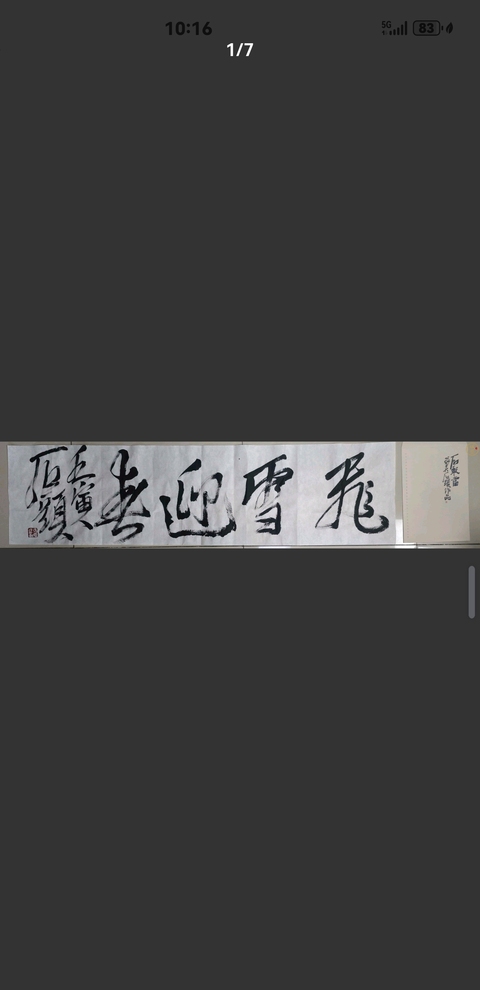 10:16
5G
83
1/7
飛雪迎春
壬寅
石頭